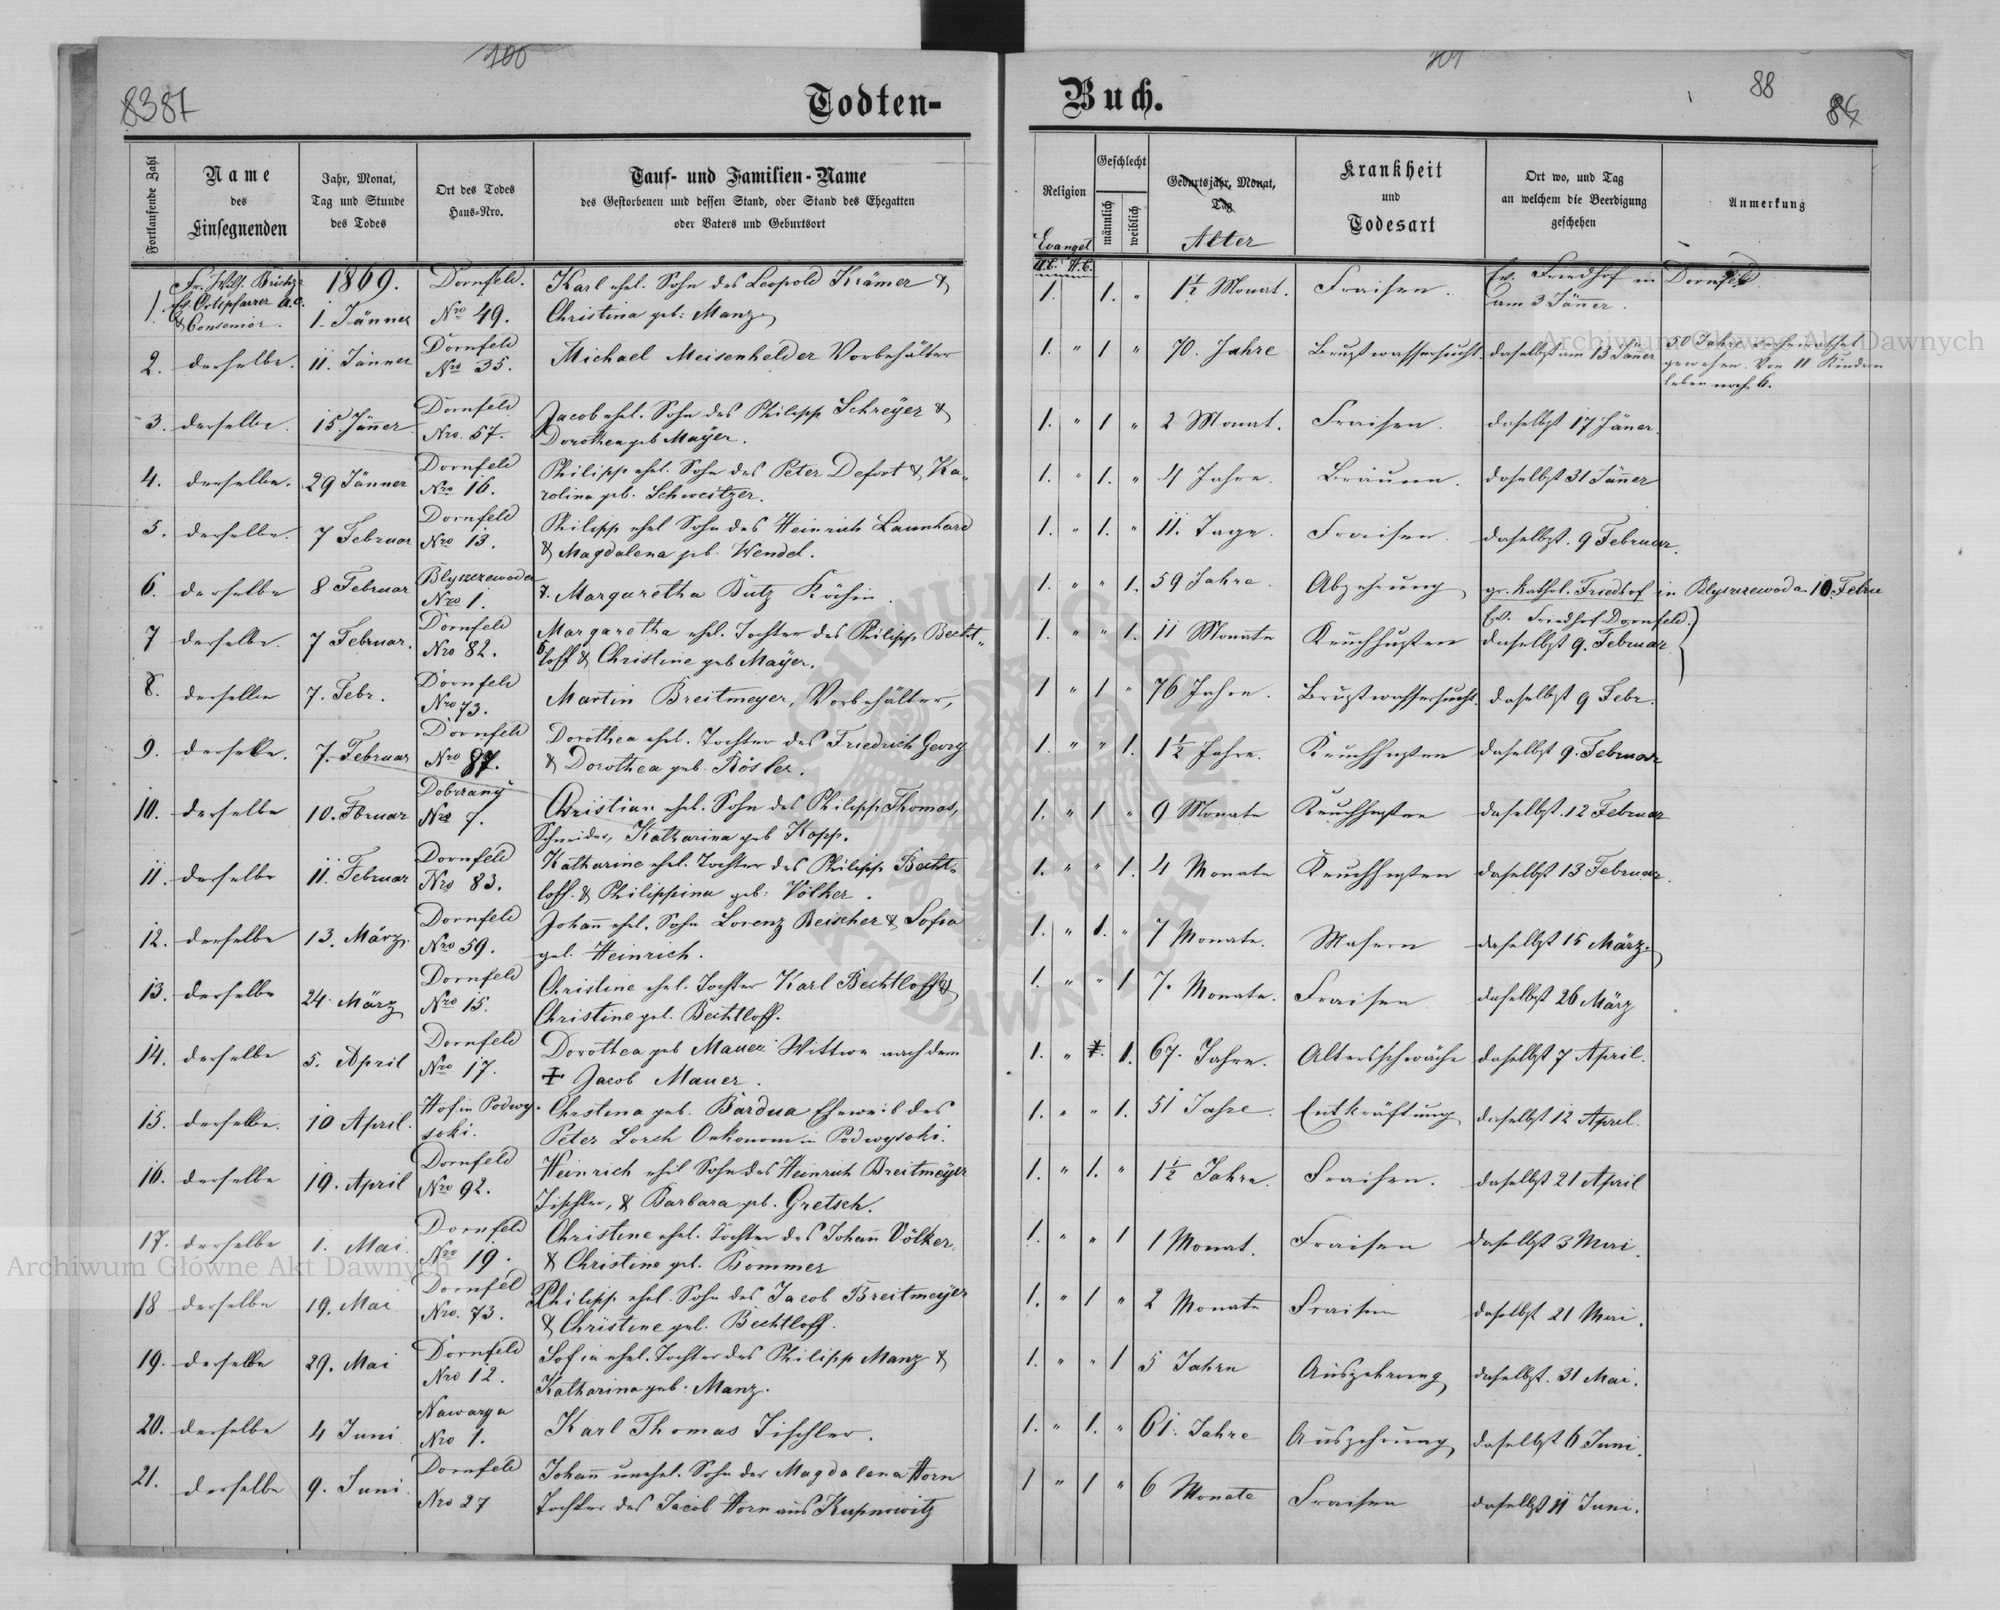 100
101
8387
88
86
Todten-
Buch.
Fortlaufende Zahl
Name des Einsegnenden
Jahr, Monat, Tag und Stunde des Todes
Ort des Todes Haus-Nro.
Tauf- und Familien-Name
des Gestorbenen und dessen Stand, oder Stand des Ehegatten
oder Vaters und Geburtsort
Religion
Evangel.
A.C. H.C.
Geschlecht
männlich
weiblich
Geburtsjahr, Monat, Tag
Alter
Krankheit und Todesart
Ort wo, und Tag an welchem die Beerdigung geschehen
Anmerkung
1. Fr. Wilh. 1869. Dornfeld. Karl ehel. Sohn des Leopold Krämer &
Ev. Ortspfarrer A.C. & Consenior. 1. Jänner Nro 49. Christina geb: Manz.
1. 1. " 1½ Monat. Fraisen. Ev. Friedhof in Dornfeld am 3 Jänner.
2. derselbe. 11. Jänner Dornfeld Nro 35. Michael Meisenhelder Vorbehälter
1. " 1 " 70. Jahre Brustwassersucht daselbst am 13 Jäner 50 Jahre verheirathet
gewesen. Von 11 Kindern
leben noch 6.
3. derselbe. 15. Jäner Dornfeld Nro. 57. Jacob ehel. Sohn des Philipp Schreÿer &
Dorothea geb Maÿer.
1. " 1 " 2 Monat. Fraisen. daselbst 17 Jäner.
4. derselbe. 29 Jänner Dornfeld Nro 16. Philipp ehel. Sohn des Peter Defort & Ka-
rolina geb. Schweitzer.
1. " 1. " 4 Jahre. Bräune. daselbst 31 Jänner
5. derselbe. 7 Februar Dornfeld Nro 13. Philipp ehel Sohn des Heinrich Launhard
& Magdalena geb. Wendel.
1. " 1. " 11. Tage. Fraisen. daselbst. 9 Februar.
6. derselbe 8 Februar Blyszczewoda Nro 1. Margaretha Butz Köchin.
1. " " 1. 59 Jahre. Abzehrung gr. kathol. Friedhof in Blyszczewoda 10. Febru
7 derselbe. 7 Februar. Dornfeld Nro 82. Margaretha ehel. Tochter des Philipp Becht-
loff & Christine geb Maÿer.
1. " " 1. 11 Monate Keuchhusten Ev. Friedhof Dornfeld. daselbst 9. Februar
8. derselbe 7. Febr. Dornfeld Nro 73. Martin Breitmeyer, Vorbehälter,
1 " 1 " 76 Jahre. Brustwassersucht. daselbst 9 Febr.
9. derselbe. 7. Februar Dornfeld Nro 87. Dorothea ehel. Tochter des Friedrich Georg
& Dorothea geb. Rösler.
1. " " 1. 1½ Jahre. Keuchhusten daselbst 9. Februar
10. derselbe 10. Fbruar Dobrzanÿ Nro 7. Christian ehel. Sohn des Philipp Thomas,
Schneider, Katharina geb Kopp.
1. " 1 " 9 Monate Keuchhusten daselbst. 12 Februar
11. derselbe 11. Februar Dornfeld Nro 83. Katharine ehel. Tochter des Philipp Becht-
loff. & Philippina geb: Völker.
1. " " 1. 4 Monate Keuchhusten daselbst 13 Februar.
12. derselbe 13. März. Dornfeld Nro 59. Johañ ehel. Sohn Lorenz Beischer & Sofia
geb. Heinrich.
1. " 1. " 7 Monate. Masern daselbst 15 März.
13. derselbe 24. März Dornfeld Nro 15. Christine ehel. Tochter Karl Bechtloff &
Christine geb. Bechtloff.
1. " " 1 7. Monate. Fraisen daselbst 26 März
14. derselbe 5. April Dornfeld Nro 17. Dorothea geb Mauer Wittwe nach dem
Jacob Mauer.
1. " 1. 67. Jahre. Altersschwäche daselbst 7 April.
15. derselbe. 10 April. Hof in Podwy- soki. Chrstina geb. Bardua Eheweib des
Peter Lorch Oekonom in Podwysoki.
1. " " 1. 51 Jahre. Entkräftung daselbst 12 April.
16. derselbe 19. April Dornfeld Nro 92. Heinrich ehel Sohn des Heinrich Breitmeÿer
Tischler, & Barbara geb. Gretsch.
1. " 1. " 1½ Jahre. Fraisen. daselbst 21 April
17. derselbe 1. Mai. Dornfeld Nro 19. Christine ehel. Tochter des Johañ Völker,
& Christine geb. Bommer
1. " " 1 1 Monat. Fraisen daselbst 3 Mai.
18 derselbe 19. Mai Dornfel Nro. 73. Philipp ehel. Sohn des Jacob Breitmeÿer
& Christine geb. Bechtloff.
1. " 1 " 2 Monate Fraisen daselbst 21 Mai.
19. derselbe 29. Mai Dornfeld Nro 12. Sofia ehel. Tochter des Philipp Manz &
Katharina geb: Manz.
1. " " 1 5 Jahre Auszehrung daselbst. 31 Mai.
20. derselbe 4 Juni Nawarya Nro 1. Karl Thomas Tischler.
1. " 1. " 61. Jahre Auszehrung daselbst 6 Juni.
21. derselbe 9. Juni. Dornfeld Nro 27 Johañ unehel. Sohn der Magdalena Horn
Tochter des Jacob Horn aus Kupnowitz
1 " 1 " 6 Monate Fraisen daselbst 11 Juni.
Archiwum Główne Akt Dawnych
Archiwum Główne Akt Dawnych
ARCHIWUM GŁÓWNE AKT DAWNYCH